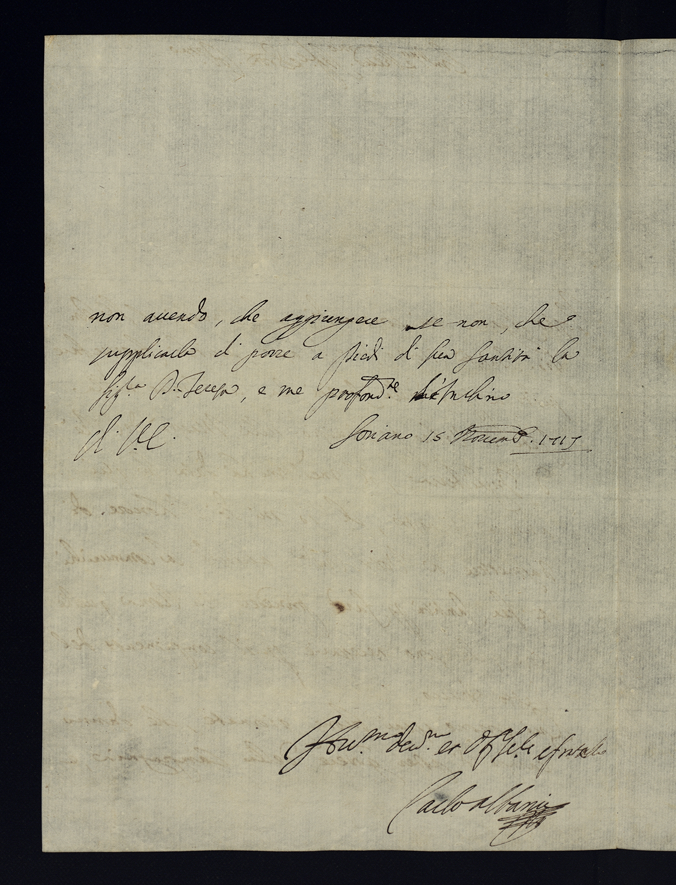 non auendo, che aggiungere se non, che
supplicarla di porre a piedi di sua Santità la
Sig.ra D. Teresa, e me profond.te
di V.E. Soriano 15 Novemb. 1717
Hu.mo deu.mo et
Carlo Albani